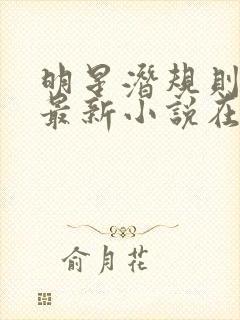 明星潛規則
最新小說在
俞月花